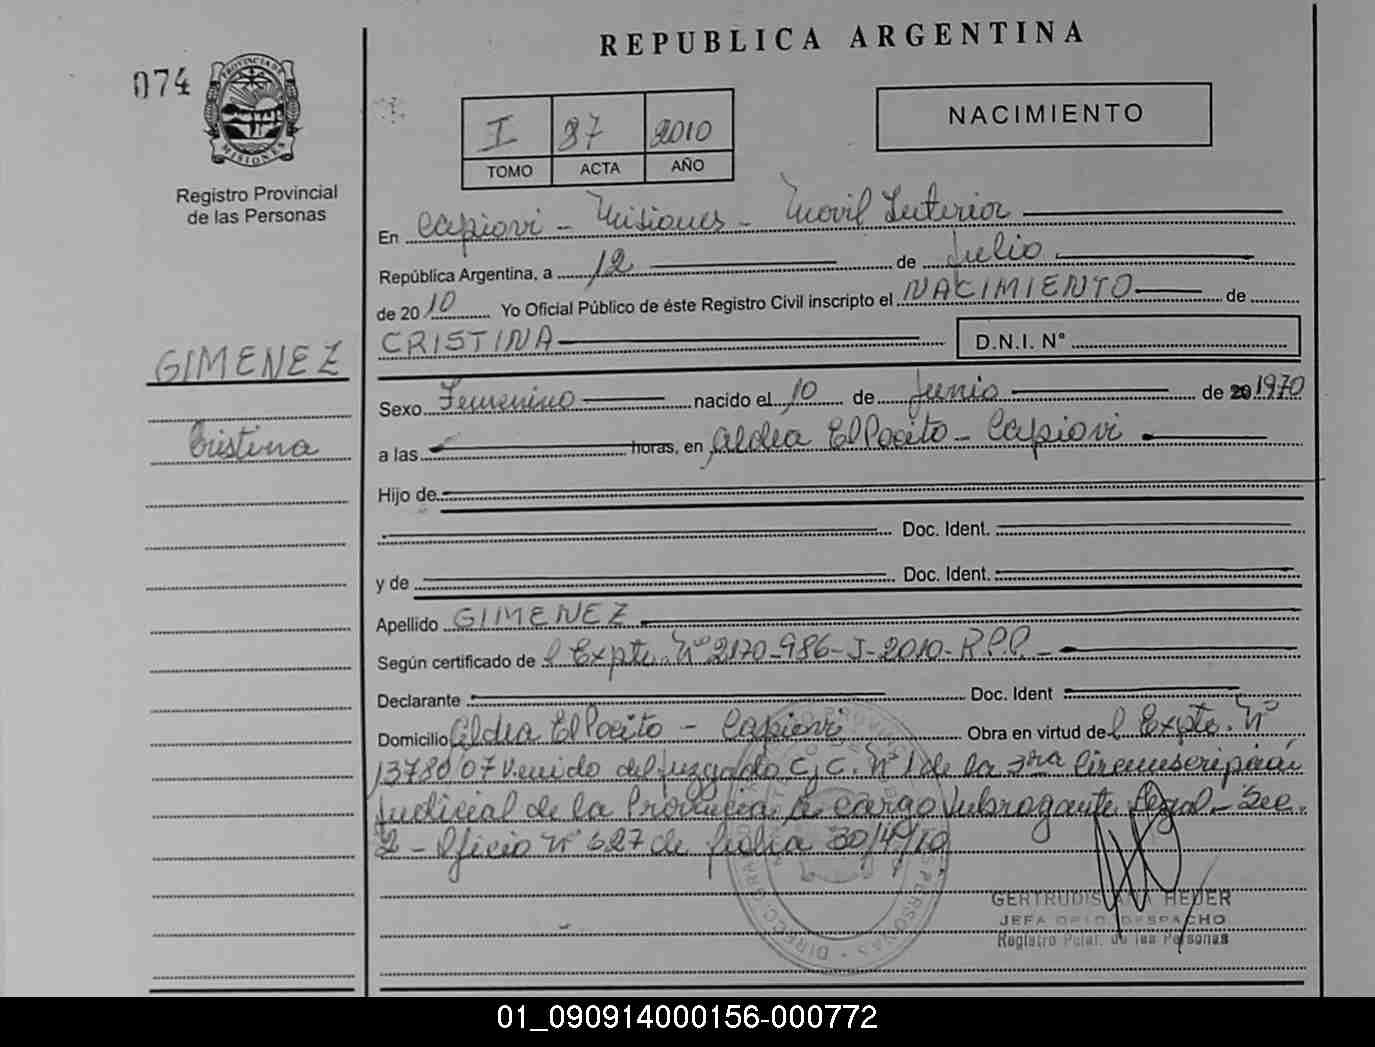 REPUBLICA ARGENTINA
074
PROVINCIA DE MISIONES
Registro Provincial
de las Personas
I 37 2010
TOMO ACTA AÑO
NACIMIENTO
En Capiovi - Misiones - Movil Interior
República Argentina, a 12 de Julio
de 2010 Yo Oficial Público de éste Registro Civil inscripto el NACIMIENTO de
CRISTINA D.N.I. N°
GIMENEZ
Cristina
Sexo Femenino nacido el 10 de Junio de 20 1970
a las horas, en Aldea El Pocito - Capiovi
Hijo de
Doc. Ident.
y de Doc. Ident.
Apellido GIMENEZ
Según certificado de Expte. N° 2170-986-J-2010-R.P.P.
Declarante Doc. Ident
Domicilio Aldea El Pocito - Capiovi Obra en virtud del Expte. N°
1378/07 venido del Juzgado C y C. N° 1 de la 3ra Circunscripción
Judicial de la Provincia a cargo Subrogante Legal - Sec.
2 - Oficio N° 327 de fecha 30/4/10
GERTRUDIS ANA HEDER
JEFA DPTO. DESPACHO
Registro Pcial. de las Personas
01_090914000156-000772